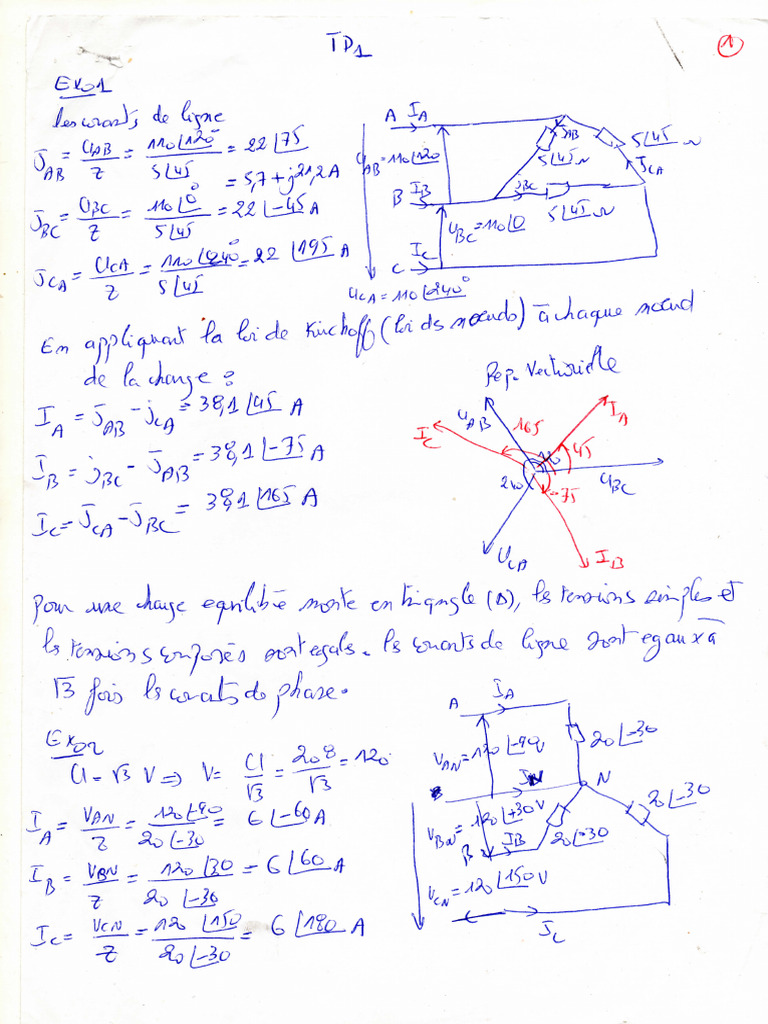 TD1
1
Exo1
Les courants de ligne
J̄AB = UAB/Z = 110∠120°/5∠45 = 22∠75
= 5,7 + j21,2 A
J̄BC = UBC/Z = 110∠0°/5∠45 = 22∠-45 A
J̄CA = UCA/Z = 110∠240°/5∠45 = 22∠195 A
A IA
UAB = 110∠120
JAB
5∠45 Ω
5∠45 Ω
JCA
B IB
JBC
5∠45 Ω
UBC = 110∠0
IC
C
UCA = 110∠240°
En appliquant la loi de Kirchoff (loi des nœuds) à chaque nœud
de la charge :
IA = J̄AB - J̄CA = 38,1∠45 A
IB = J̄BC - J̄AB = 38,1∠-75 A
IC = J̄CA - J̄BC = 38,1∠165 A
Rep. Vectorielle
UAB
IA
IC
165
45
-75
240
UBC
UCA
IB
Pour une charge equilibrée monte en triangle (Δ), les tensions simples et
les tensions composés sont egals. les courants de ligne sont egaux à
√3 fois les courats de phase.
Exo2
U = √3 V ⇒ V = U/√3 = 208/√3 = 120
IA = VAN/Z = 120∠-90/20∠-30 = 6∠-60 A
IB = VBN/Z = 120∠30/20∠-30 = 6∠60 A
IC = VCN/Z = 120∠150/20∠-30 = 6∠180 A
A IA
VAN = 120∠-90 V
20∠-30
IN
N
VBN = 120∠+30 V
B IB
20∠-30
20∠-30
VCN = 120∠150 V
IC